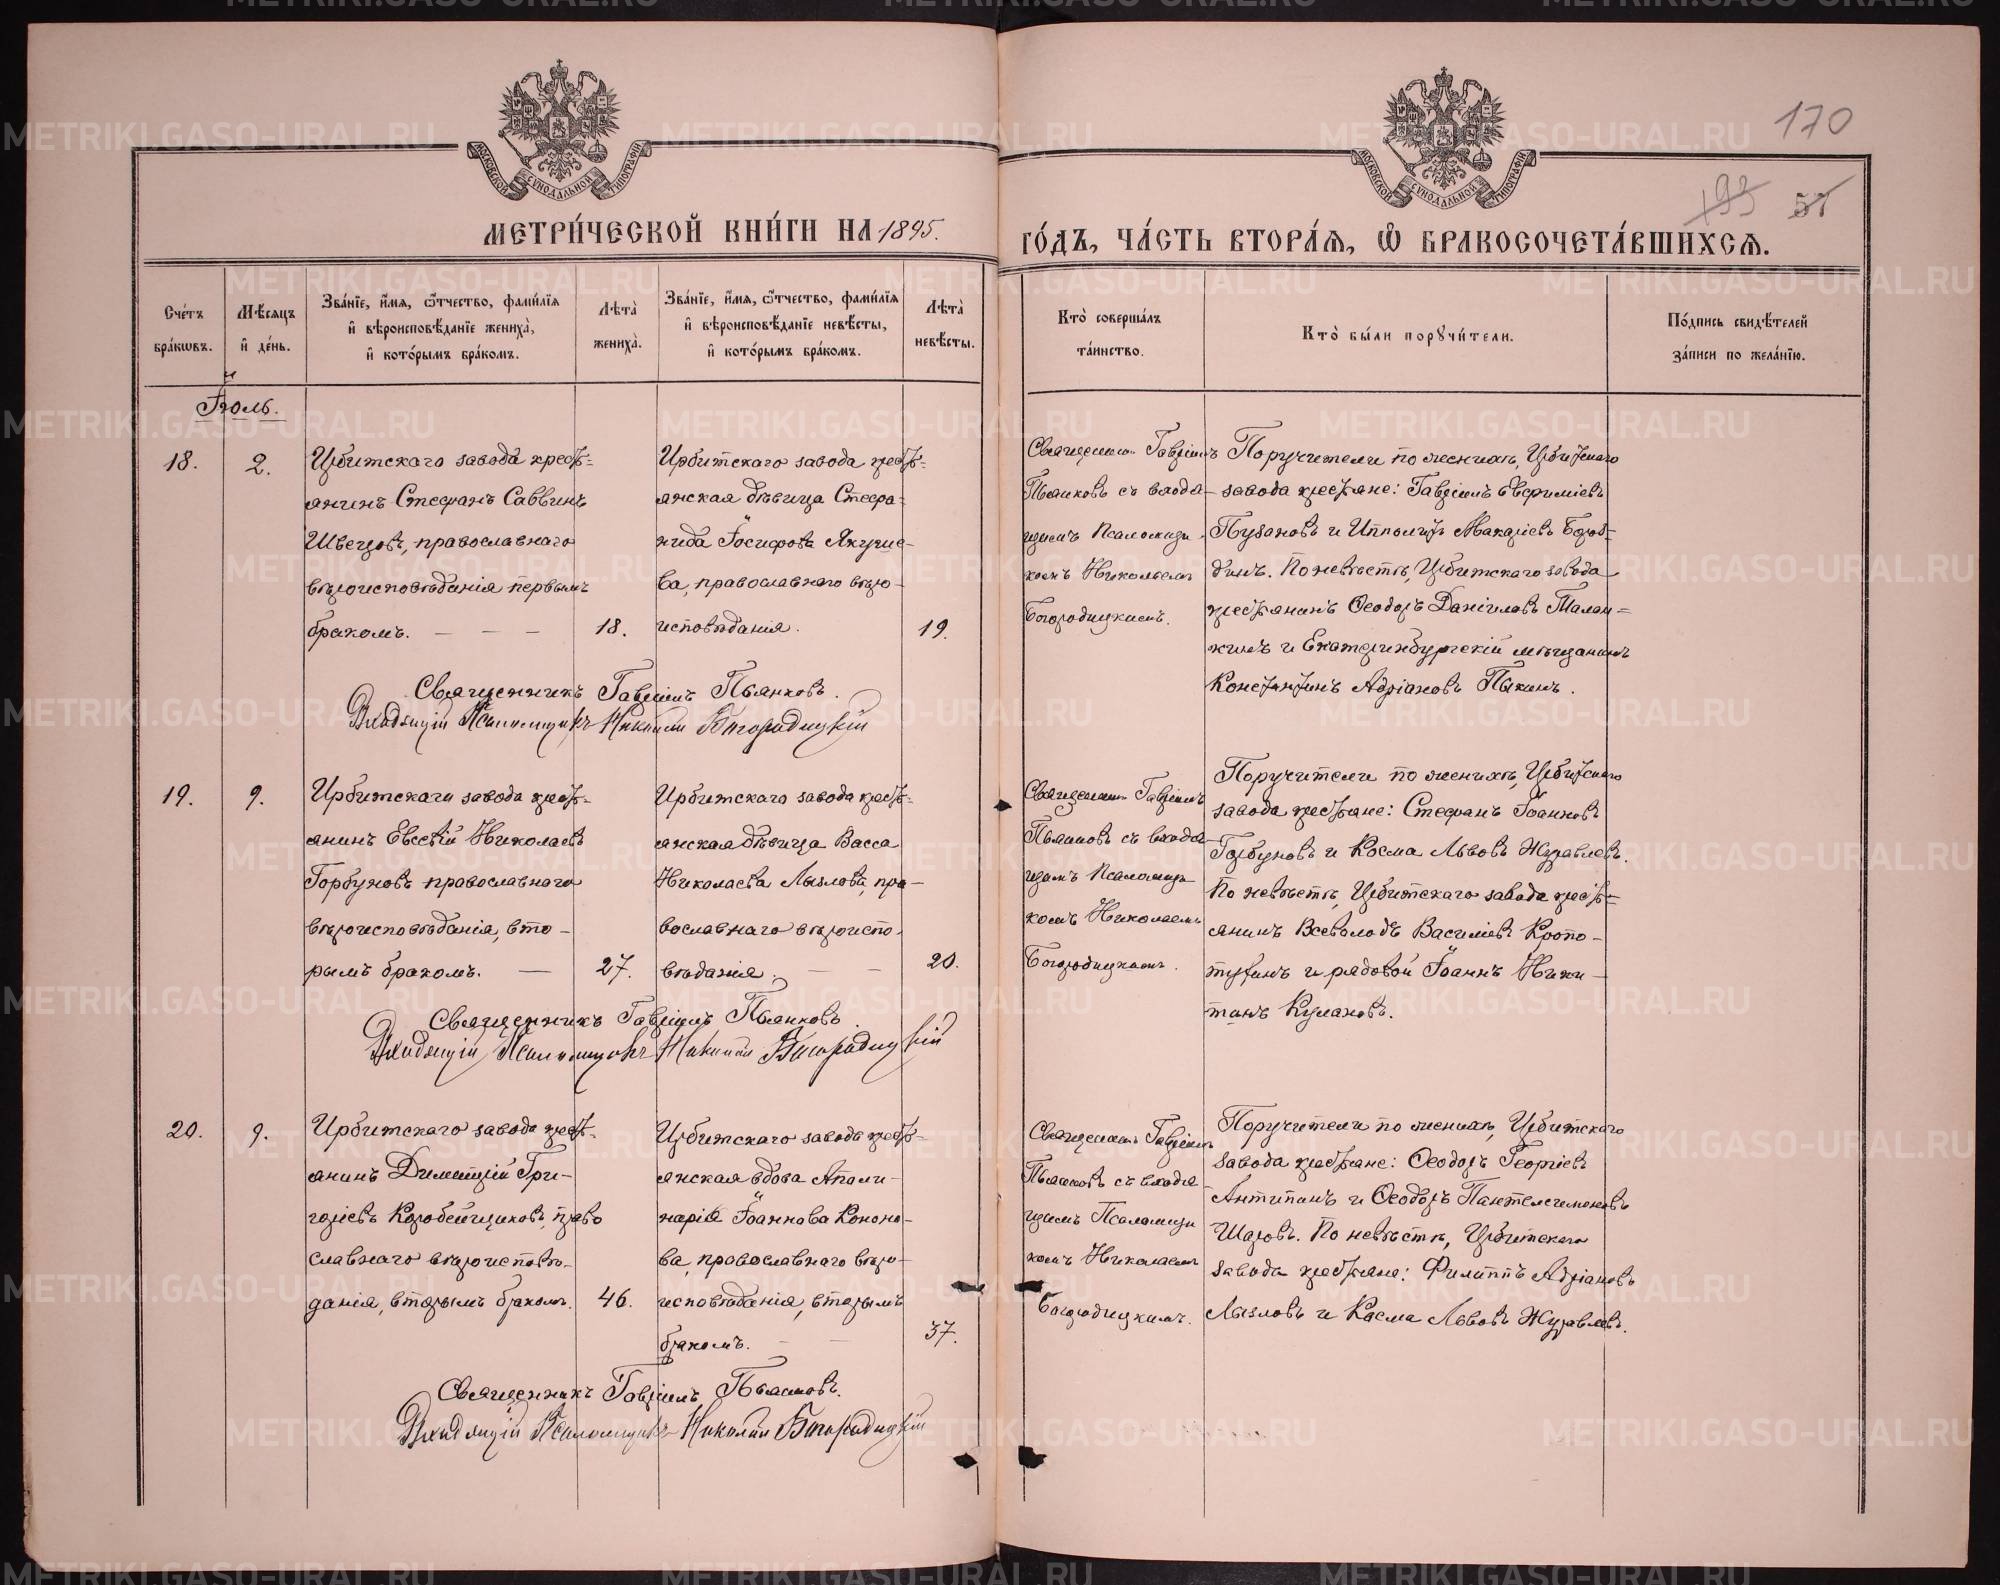 170
195 51
МОСКОВСКОЙ СѴНОДАЛЬНОЙ ТИПОГРАФІИ
МОСКОВСКОЙ СѴНОДАЛЬНОЙ ТИПОГРАФІИ
МЕТРИ́ЧЕСКОЙ КНИ́ГИ НА 1895.
ГО́ДЪ, ЧА́СТЬ ВТОРА́Я, Ѡ҆ БРАКОСОЧЕТА́ВШИХСЯ.
Сче́тъ бра́кѡвъ.
Мѣ́сяцъ и҆ де́нь.
Зва́нїе, и҆́мя, ѻ҆́тчество, фами́лїя и҆ вѣроисповѣ́данїе жениха̀, и҆ кото́рымъ бра́комъ.
Лѣта̀ жениха̀.
Зва́нїе, и҆́мя, ѻ҆́тчество, фами́лїя и҆ вѣроисповѣ́данїе невѣ́сты, и҆ кото́рымъ бра́комъ.
Лѣта̀ невѣ́сты.
Кто̀ соверша́лъ та́инство.
Кто̀ бы́ли порꙋчи́тели.
По́дпись свидѣ́телей за́писи по жела́нїю.
Іюль.
18.
2.
Ирбитскаго завода кресть-
янинъ Стефанъ Саввинъ
Швецовъ, православнаго
вѣроисповѣданія первымъ
бракомъ.
18.
Ирбитскаго завода кресть-
янская дѣвица Стефа-
нида Іосифова Якуче-
ва, православнаго вѣро-
исповѣданія.
19.
Священник Гавріилъ
Пьянковъ съ входя-
щимъ Псаломщи-
комъ Николаемъ
Богородицкимъ.
Поручители по женихѣ, Ирбитскаго
завода крестьяне: Гавріилъ Евфиміевъ
Пузановъ и Ипполитъ Макаріевъ Боров-
динъ. По невѣстѣ, Ирбитскаго завода
крестьянинъ Ѳеодоръ Даніиловъ Талан-
кинъ и Екатеринбургскій мѣщанинъ
Константинъ Адріановъ Пякинъ.
Священникъ Гавріилъ Пьянковъ.
Входящій Псаломщикъ Николай Богородицкій
19.
9.
Ирбитскаго завода кресть-
янинъ Евсевій Николаевъ
Горбуновъ православнаго
вѣроисповѣданія, вто-
рымъ бракомъ.
27.
Ирбитскаго завода кресть-
янская дѣвица Васса
Николаева Лызлова, пра-
вославнаго вѣроиспо-
вѣданія.
20.
Священник Гавріилъ
Пьянковъ съ входя-
щимъ Псаломщи-
комъ Николаемъ
Богородицкимъ.
Поручители по женихѣ, Ирбитскаго
завода крестьяне: Стефанъ Іоанновъ
Горбуновъ и Косма Львовъ Журавлевъ.
По невѣстѣ, Ирбитскаго завода кресть-
янинъ Всеволодъ Василіевъ Кропо-
тухинъ и рядовой Іоаннъ Ники-
тинъ Кулаковъ.
Священникъ Гавріилъ Пьянковъ.
Входящій Псаломщикъ Николай Богородицкій
20.
9.
Ирбитскаго завода кресть-
янинъ Димитрій Гри-
горіевъ Коробейщиковъ, право
славнаго вѣроисповѣ-
данія, вторымъ бракомъ.
46.
Ирбитскаго завода кресть-
янская вдова Апали-
нарія Іоаннова Кононо-
ва, православнаго вѣро-
исповѣданія, вторымъ
бракомъ.
37.
Священникъ Гавріилъ
Пьянковъ съ входя-
щимъ Псаломщи
комъ Николаемъ
Богородицкимъ.
Поручители по женихѣ, Ирбитскаго
завода крестьяне: Ѳеодоръ Георгіевъ
Антипинъ и Ѳеодоръ Пантелеимоновъ
Шаровъ. По невѣстѣ, Ирбитскаго
завода крестьяне: Филиппъ Адріановъ
Лызловъ и Косма Львовъ Журавлевъ.
Священникъ Гавріилъ Пьянковъ.
Входящій Псаломщикъ Николай Богородицкій
METRIKI.GASO-URAL.RU